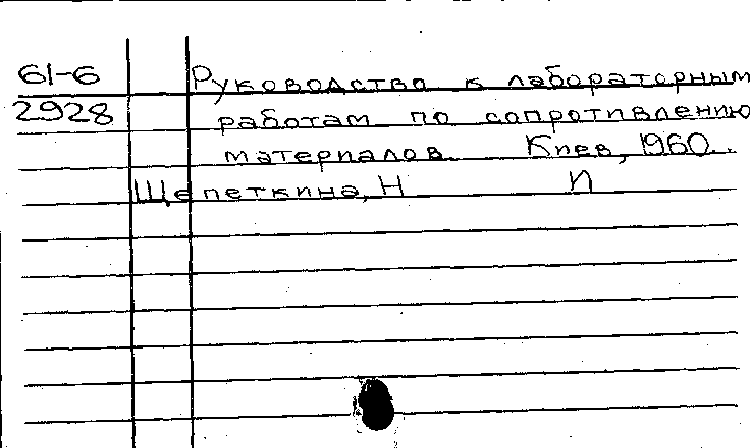 61-6 Руководство к лабораторным
2928 работам по сопротивлению
материалов. Киев, 1960.
Щепеткина, Н И